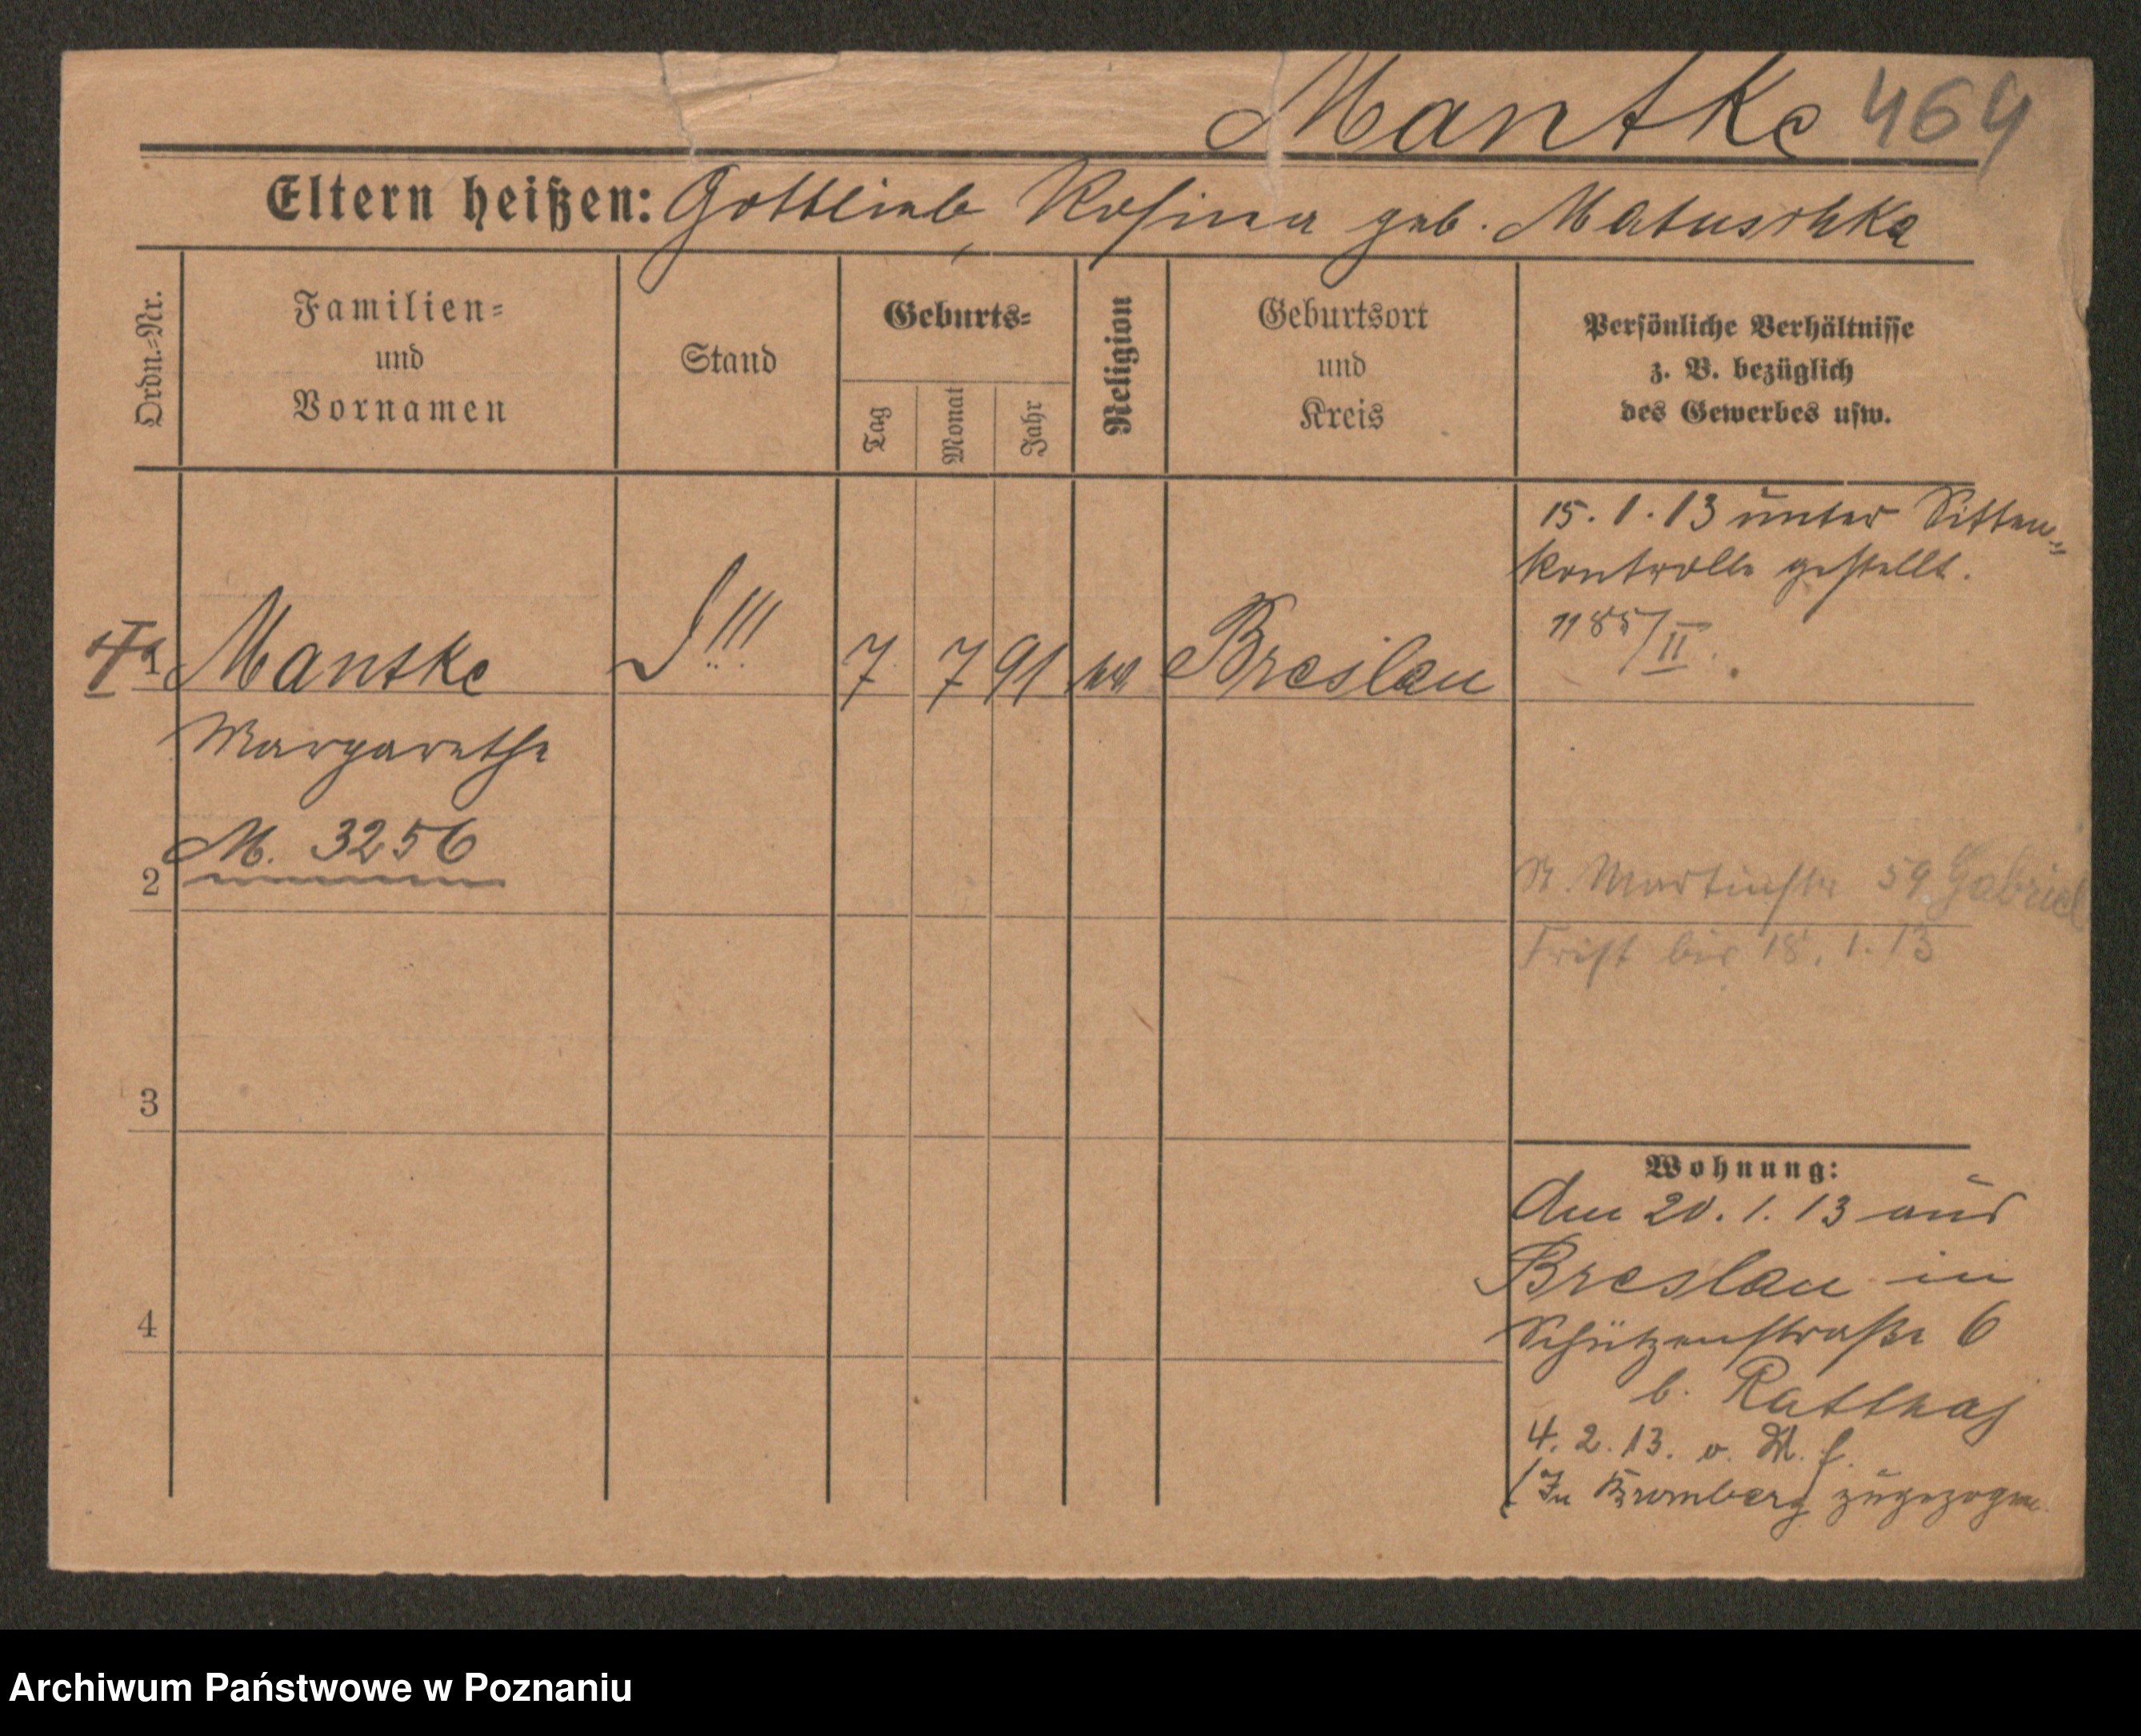 Mantke 464
Eltern heißen: Gottlieb, Rosina geb. Matuschke
Ordn.=Nr.
Familien=
und
Vornamen
Stand
Geburts=
Tag
Monat
Jahr
Religion
Geburtsort
und
Kreis
Persönliche Verhältnisse
z. B. bezüglich
des Gewerbes usw.
15. 1. 13 unter Sitten=
kontrolle gestellt.
1185/II.
1 Mantke 7. 7 91 Breslau
Margarethe
M. 3256
2
St. Martinstr 59. Gabriel
Frist bis 18. 1. 13
3
Wohnung:
Am 20. 1. 13 aus
Breslau in
Schützenstraße 6
b. Ratthaj
4
4. 2. 13. v.
(In Bromberg zugezogen.